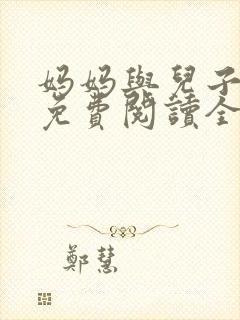 妈妈與兒子
免費閱讀全
鄭慧